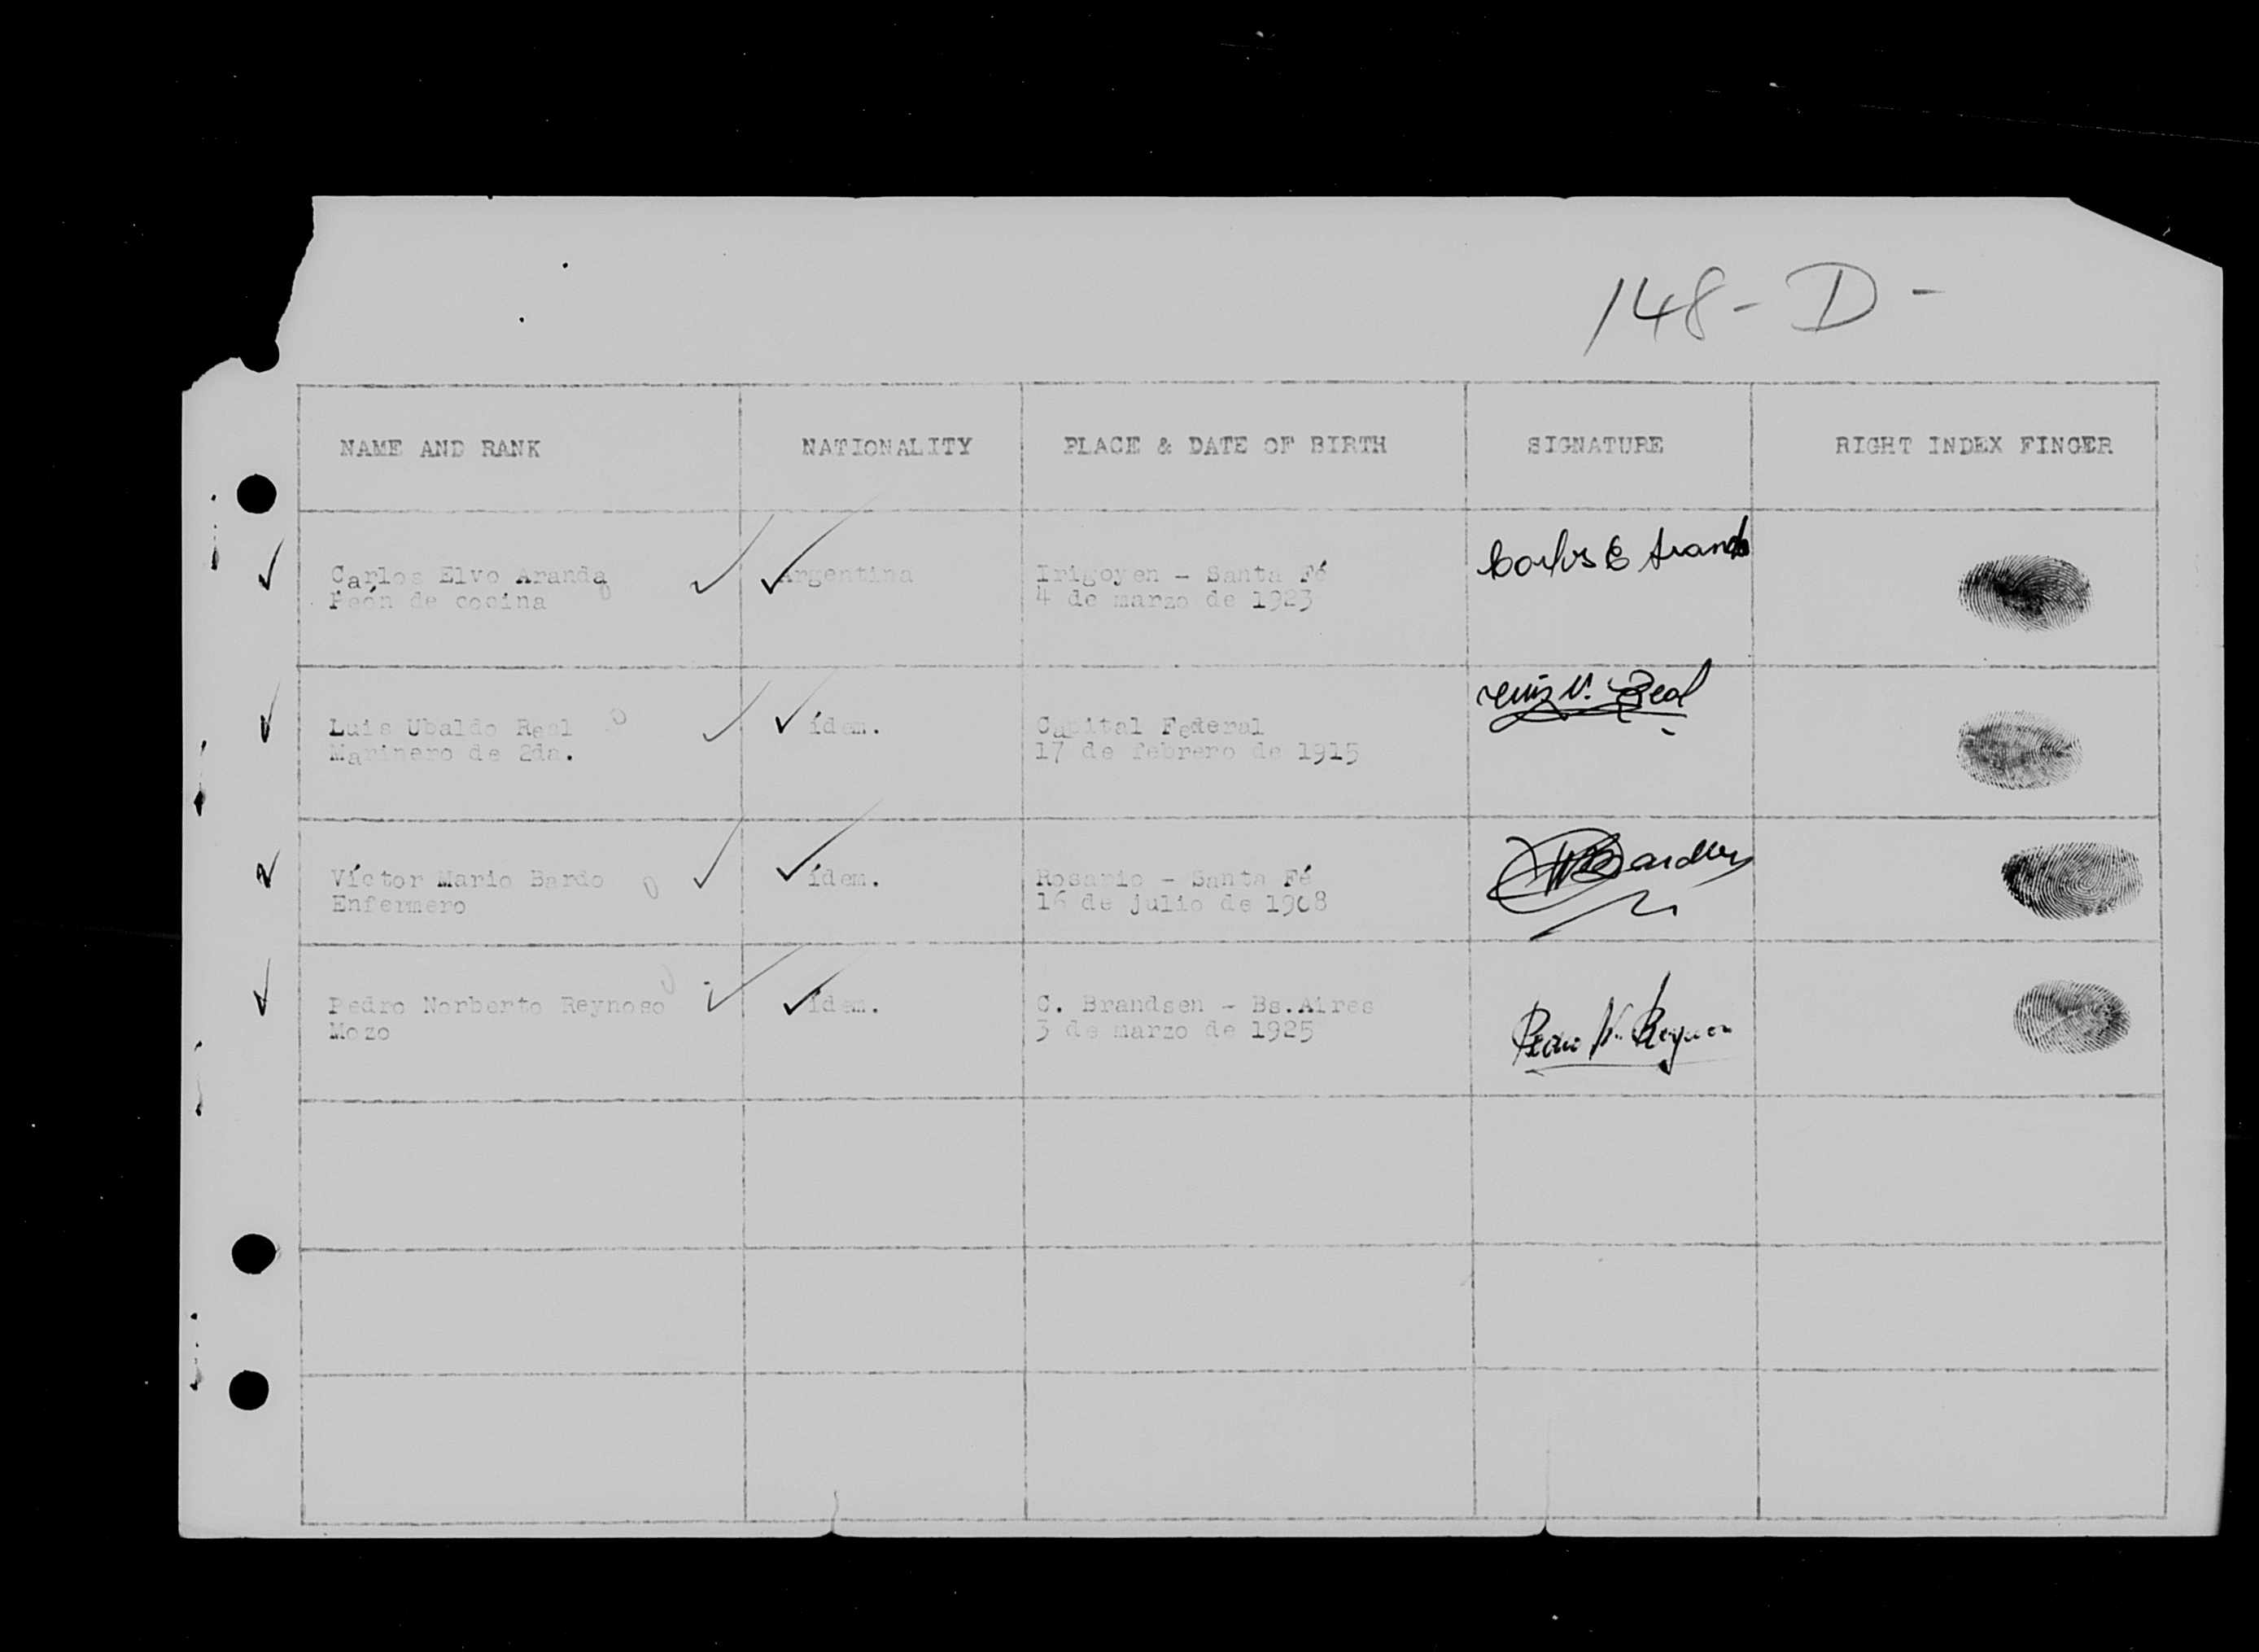 148 - D -
NAME AND RANK
NATIONALITY
PLACE & DATE OF BIRTH
SIGNATURE
RIGHT INDEX FINGER
Carlos Elvo Aranda
Peón de cocina
Argentina
Irigoyen - Santa Fé
4 de marzo de 1923
Carlos E Aranda
Luis Ubaldo Real
Marinero de 2da.
ídem.
Capital Federal
17 de febrero de 1915
Luis U. Real
Víctor Mario Bardo
Enfermero
ídem.
Rosario - Santa Fé
16 de julio de 1908
Pedro Norberto Reynoso
Mozo
ídem.
C. Brandsen - Bs.Aires
3 de marzo de 1925
Pedro N. Reynoso